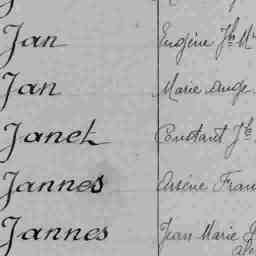 Jan Eugène Jh M
Jan Marie Ange
Janet Constant Jh
Jannes Arsène Fran
Jannes Jean Marie